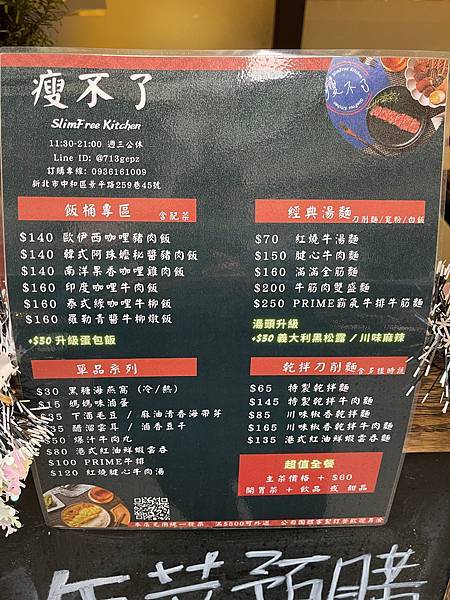 瘦不了
SlimFree Kitchen
11:30-21:00 週三公休
Line ID: @713gepz
訂購專線: 0936161009
新北市中和區景平路259巷45號
瘦不了
飯桶專區 含配菜
$140 歐伊西咖哩豬肉飯
$140 韓式阿珠嬤秘醬豬肉飯
$140 南洋果香咖哩雞肉飯
$160 印度咖哩牛肉飯
$160 泰式綠咖哩牛柳飯
$160 羅勒青醬牛柳燉飯
+$30 升級蛋包飯
經典湯麵 刀削麵/寬粉/白飯
$70 紅燒牛湯麵
$150 腱心牛肉麵
$160 滿滿全筋麵
$200 牛筋肉雙盛麵
$250 PRIME霸氣牛排牛筋麵
湯頭升級
+$50 義大利黑松露 / 川味麻辣
單品系列
$30 黑糖海燕窩 (冷/熱)
$15 媽媽味滷蛋
$35 下酒毛豆 / 麻油清香海帶芽
$35 醋溜雲耳 / 滷香豆干
$50 爆汁牛肉丸
$80 港式紅油鮮蝦雲吞
$100 PRIME牛排
$120 紅燒腱心牛肉湯
乾拌刀削麵 含多樣時蔬
$65 特製乾拌麵
$145 特製乾拌牛肉麵
$85 川味椒香乾拌麵
$165 川味椒香乾拌牛肉麵
$135 港式紅油鮮蝦雲吞麵
超值全餐
主菜價格 + $60
開胃菜 + 飲品 或 甜品
本店免用統一發票 滿$500可外送 公司團體客製訂餐歡迎再洽
年菜預購